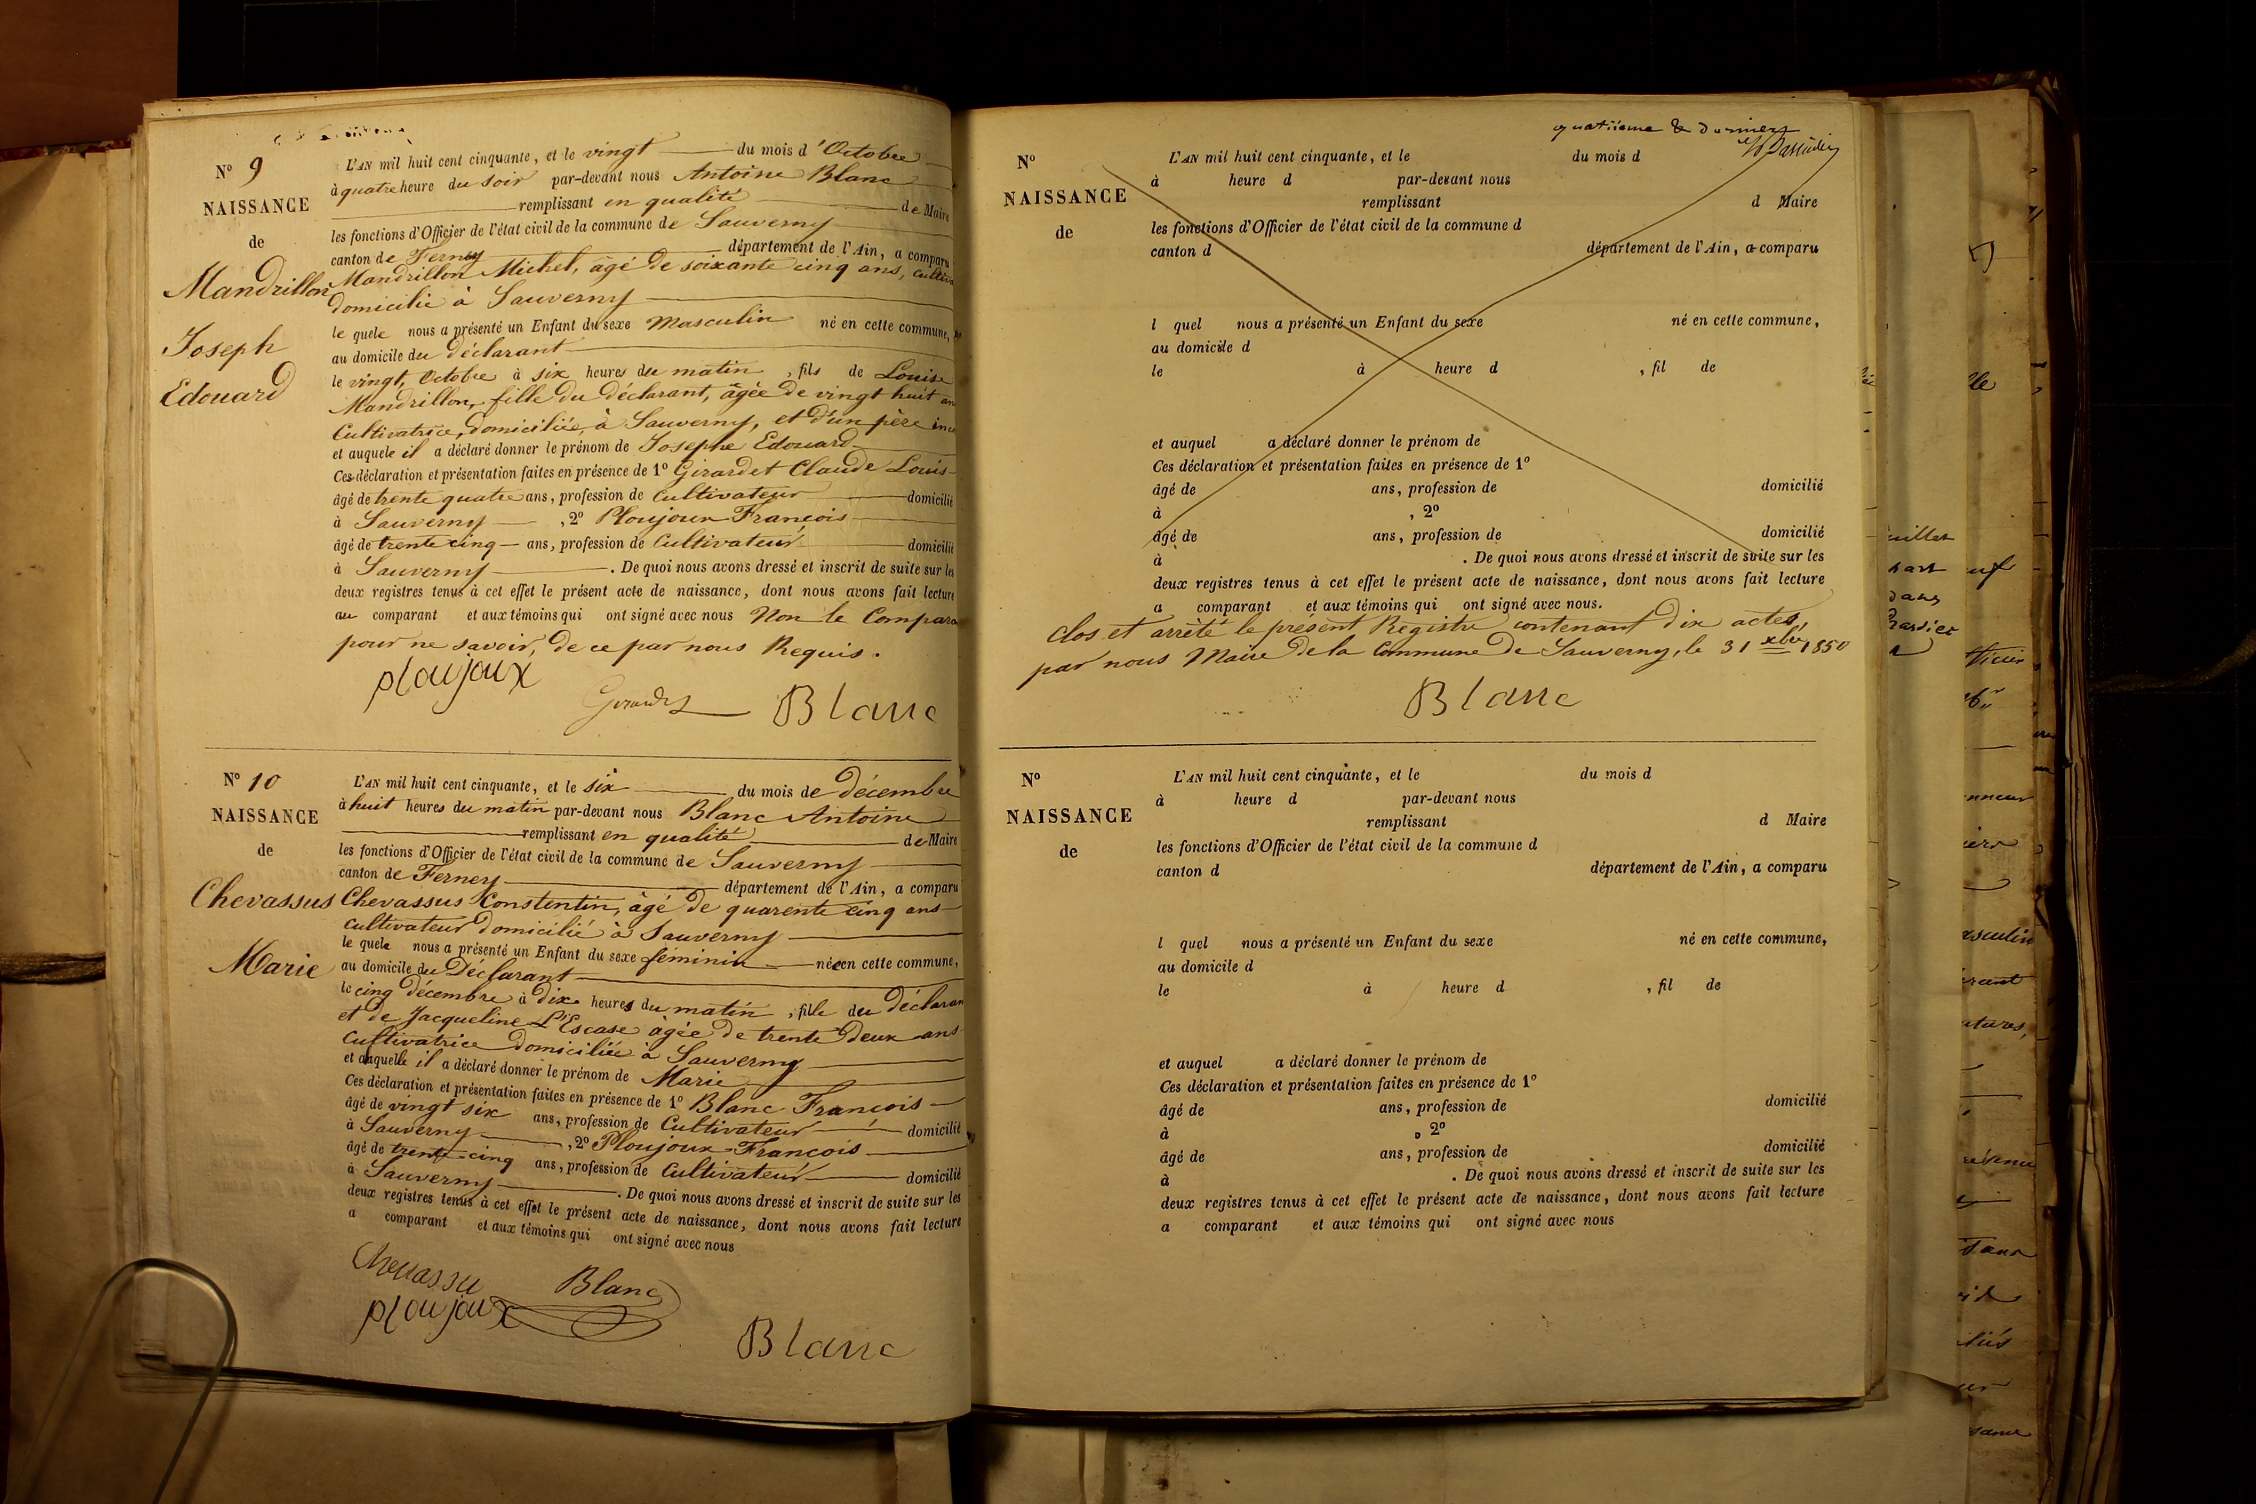 N° 9
NAISSANCE
de
Mandrillon
Joseph
Edouard
L'AN mil huit cent cinquante, et le vingt du mois d'Octobre
à quatre heure du soir par-devant nous Antoine Blanc
remplissant en qualité de Maire
les fonctions d'Officier de l'état civil de la commune de Sauverny
canton de Ferney département de l'Ain, a comparu
Mandrillon Michel, âgé de soixante cinq ans,
domicilié à Sauverny
le quel nous a présenté un Enfant du sexe Masculin né en cette commune,
au domicile du déclarant
le vingt, Octobre à six heures du matin, fils de Louise
Mandrillon, fille du déclarant, âgée de vingt huit
Cultivatrice, domiciliée à Sauverny, et d'un père
et auquel il a déclaré donner le prénom de Josephe Edouard
Ces déclaration et présentation faites en présence de 1° Girardet Claude Louis
âgé de trente quatre ans, profession de Cultivateur domicilié
à Sauverny, 2° Ploujoux François
âgé de trente cinq ans, profession de Cultivateur domicilié
à Sauverny. De quoi nous avons dressé et inscrit de suite sur les
deux registres tenus à cet effet le présent acte de naissance, dont nous avons fait lecture
au comparant et aux témoins qui ont signé avec nous Non le
pour ne savoir, de ce par nous Requis.
ploujoux
Blanc
N° 10
NAISSANCE
de
Chevassus
Marie
L'AN mil huit cent cinquante, et le six du mois de décembre
à huit heures du matin par-devant nous Blanc Antoine
remplissant en qualité de Maire
les fonctions d'Officier de l'état civil de la commune de Sauverny
canton de Ferney département de l'Ain, a comparu
Chevassus Constentin, âgé de quarente cinq ans
cultivateur domicilié à Sauverny
le quel nous a présenté un Enfant du sexe féminin née en cette commune,
au domicile du Déclarant
le cinq décembre à dix heures du matin, fille du
et de Jacqueline L'Escase âgée de trente deux ans
Cultivatrice domiciliée à Sauverny
et auquelle il a déclaré donner le prénom de Marie
Ces déclaration et présentation faites en présence de 1° Blanc François
âgé de vingt six ans, profession de Cultivateur domicilié
à Sauverny, 2° Ploujoux François
âgé de trente cinq ans, profession de Cultivateur domicilié
à Sauverny. De quoi nous avons dressé et inscrit de suite sur les
deux registres tenus à cet effet le présent acte de naissance, dont nous avons fait lecture
a comparant et aux témoins qui ont signé avec nous
Chevassu Blanc
ploujoux
Blanc
quatrieme & dernier
N°
NAISSANCE
de
L'AN mil huit cent cinquante, et le du mois d
à heure d par-devant nous
remplissant d Maire
les fonctions d'Officier de l'état civil de la commune d
canton d département de l'Ain, a comparu
l quel nous a présenté un Enfant du sexe né en cette commune,
au domicile d
le à heure d, fil de
et auquel a déclaré donner le prénom de
Ces déclaration et présentation faites en présence de 1°
âgé de ans, profession de domicilié
à, 2°
âgé de ans, profession de domicilié
à. De quoi nous avons dressé et inscrit de suite sur les
deux registres tenus à cet effet le présent acte de naissance, dont nous avons fait lecture
a comparant et aux témoins qui ont signé avec nous.
clos et arrêté le présent Registre contenant dix actes,
par nous Maire de la Commune de Sauverny, le 31 xbre 1850
Blanc
N°
NAISSANCE
de
L'AN mil huit cent cinquante, et le du mois d
à heure d par-devant nous
remplissant d Maire
les fonctions d'Officier de l'état civil de la commune d
canton d département de l'Ain, a comparu
l quel nous a présenté un Enfant du sexe né en cette commune,
au domicile d
le à heure d, fil de
et auquel a déclaré donner le prénom de
Ces déclaration et présentation faites en présence de 1°
âgé de ans, profession de domicilié
à, 2°
âgé de ans, profession de domicilié
à. De quoi nous avons dressé et inscrit de suite sur les
deux registres tenus à cet effet le présent acte de naissance, dont nous avons fait lecture
a comparant et aux témoins qui ont signé avec nous